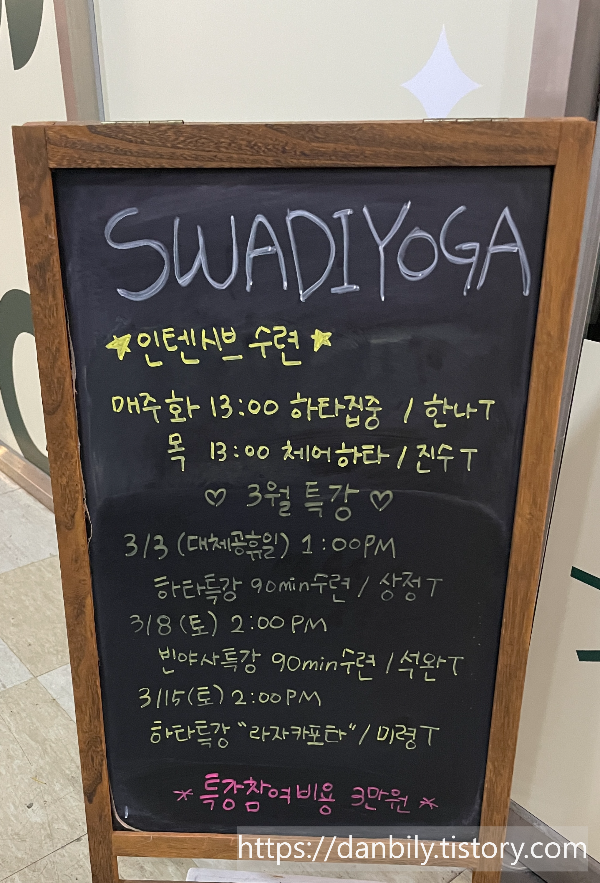 SWADIYOGA
☆인텐시브 수련☆
매주화 13:00 하타집중 / 한나T
목 13:00 체어하타 / 진수T
♡ 3월 특강 ♡
3/3 (대체공휴일) 1:00PM
하타특강 90min수련 / 상정T
3/8 (토) 2:00 PM
빈야사특강 90min수련 / 석완T
3/15(토) 2:00PM
하타특강 "라자카포타" / 미령T
* 특강참여비용 3만원 *
https://danbily.tistory.com